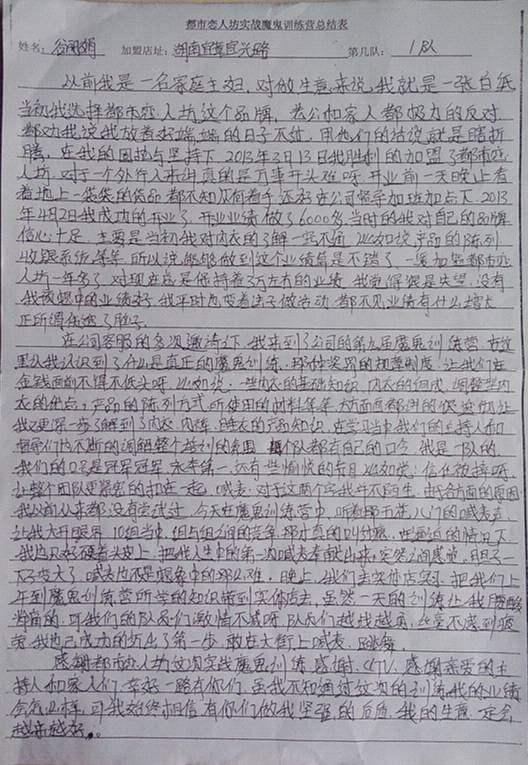 都市恋人坊实战魔鬼训练营总结表
姓名: 谷丽娟 加盟店址: 湖南宜章宜兴路 第几队: 1队
以前我是一名家庭主妇，对做生意来说，我就是一张白纸
当初我选择都市恋人坊这个品牌，老公和家人都极力的反对
都劝我说我放着好端端的日子不过，用他们的话说就是瞎折
腾，在我的固执与坚持下，2013年3月13日我胜利的加盟了都市恋
人坊，对于一个外行人来讲真的是万事开头难呀，开业前一天晚上看
着地上一袋袋的货品都不知从何着手，还好在公司督导加班加点下，2013
年4月2日我成功的开业了，开业业绩做了6000多，当时的我对自己的品牌
信心十足，主要是当初我对内衣的了解一窍不通，比如说产品的陈列
收银系统等等，所以说能够做到这个业绩算是不错了，一晃加盟都市恋
人坊一年多了，对现在总是保持着3万左右的业绩，我觉得很是失望，没有
我预想中的业绩好，我平时也变着法子做活动，都不见业绩有什么增大
正所谓伤透了脑子。
在公司客服的多次邀请下，我来到了公司的第九届魔鬼训练营，在这
里认我认识到了什么是真正的魔鬼训练，那种奖罚的规章制度，让我们在
金钱面前不得不低头呀，比如说：一些内衣的基础知识，内衣的组成，调整型内
衣的优点，产品的陈列方式，所使用的材料等等，
让我更深一步了解到了内衣、内裤、睡衣的产品知识，在学习当中我们的主持人和
督导们也不断的调解整个培训的氛围，每个队都有自己的口令，我是一队的，
我们的口号是冠军冠军，永争第一，还有一些愉快的节目，比如说：信任被摔呀，
让整个团队更紧密的扣在一起，喊卖，对于这两个字我并不陌生，由于各方面的原因
我从前从来都没有尝试过，今天在魔鬼训练营中，听着那五花八门的喊卖声，
让我大开眼界，10组当中，组与组之间的竞争，那才真的叫竞争，在逼迫的情况下
我也只好硬着头皮上，把我人生中的第一次喊卖奉献出来，突然之间感觉，胆子一
下子变大了，喊卖也不是想象中的那么难，晚上，我们去实体店实习，把我们上
午到魔鬼训练营所学的知识带到实体店去，虽然一天的训练让我们腰酸
背痛的，可我们的队员们激情不减呀，队员们越战越勇，丝毫不感到疲
劳，我也已成功的迈出了第一步，敢在大街上喊卖、跳舞。
感谢都市恋人坊这次实战魔鬼训练，感谢，感谢亲爱的主
持人和家人们，幸好一路有你们，虽我不知通过这次的训练我的业绩
会怎么样，可我始终相信有你们做我坚强的后盾，我的生意一定会
越来越好。